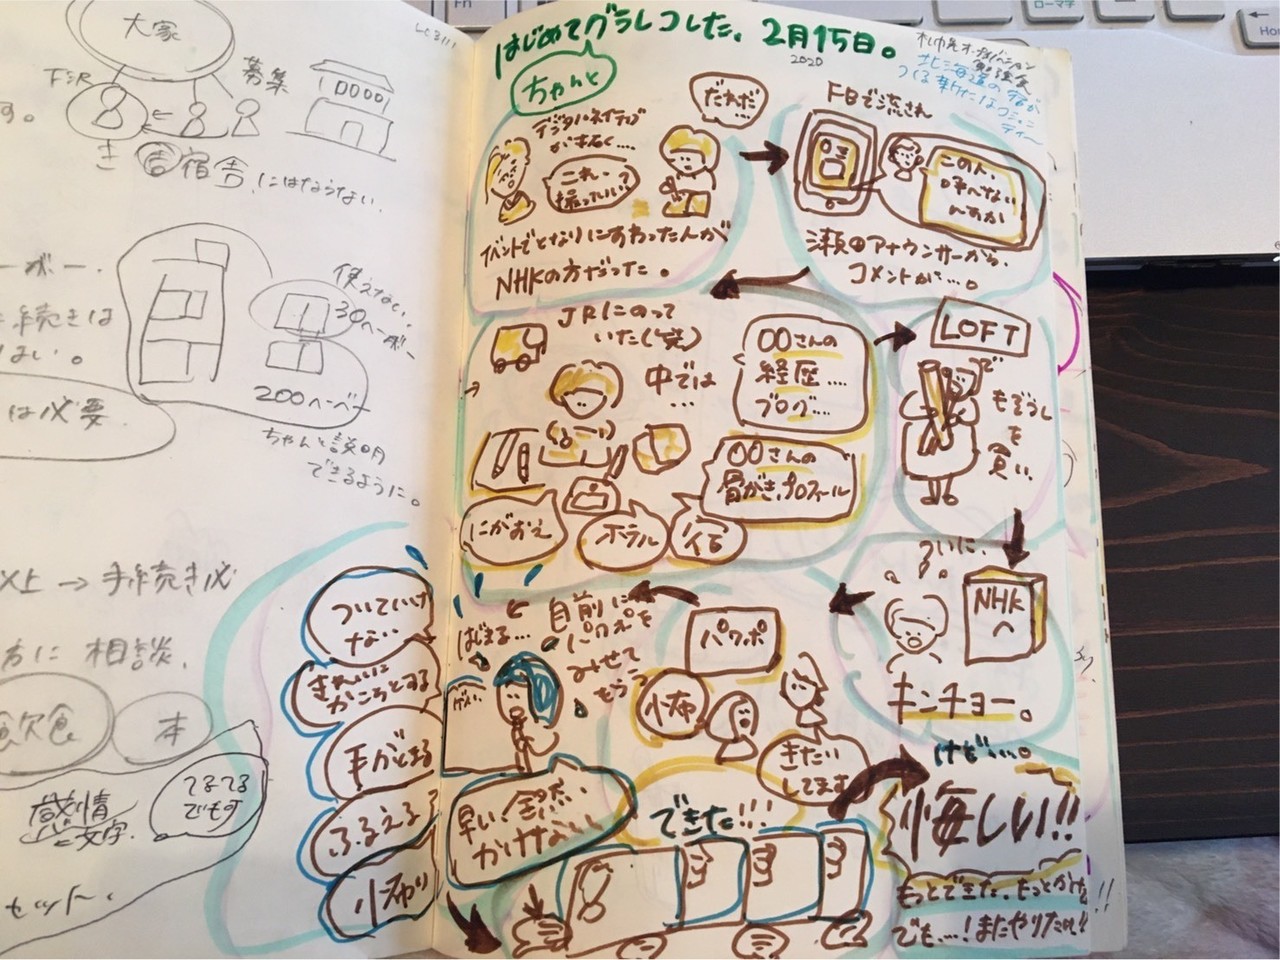 大家
募集
宿舎にはならない.
使えない
30ヘーボー
200ヘーベー
ちゃんと説明
できるように。
ーボー.
手続きは
はい。
は必要
以上 → 手続き必
方に 相談.
飲食
本
感情
と文字.
てるてる
でもす
セット.
はじめてグラレコした。2月15日。
2020
ちゃんと
北海道の宿が
つくる新たなコミュニ
ティー
デジタルネイティブ
がまねく....
これ、
撮っていい?
だれだ...
イベントでとなりにすわった人が
NHKの方だった。
FBで流され
この人、
呼べない
んすか
瀬田アナウンサーから、
コメントが....。
JRにのって
いた(笑)
中では
...
〇〇さんの
経歴....
ブログ....
〇〇さんの
骨がき,プロフィール
にがおえ
ホテル
LOFT
で
もぞうし
を
買い、
NHK
へ
キンチョー。
パワポ
小布
きたい
してます
自前に
パワポを
みせて
もらう
はじまる...
ついていけ
な...
きれいに
かこうとする
手がとまる
ふるえる
早い!全然、
かけない
できた!!!
けど....。
悔しい!!
もっとできた、もっとかけた!!
でも....!またやりたい!!